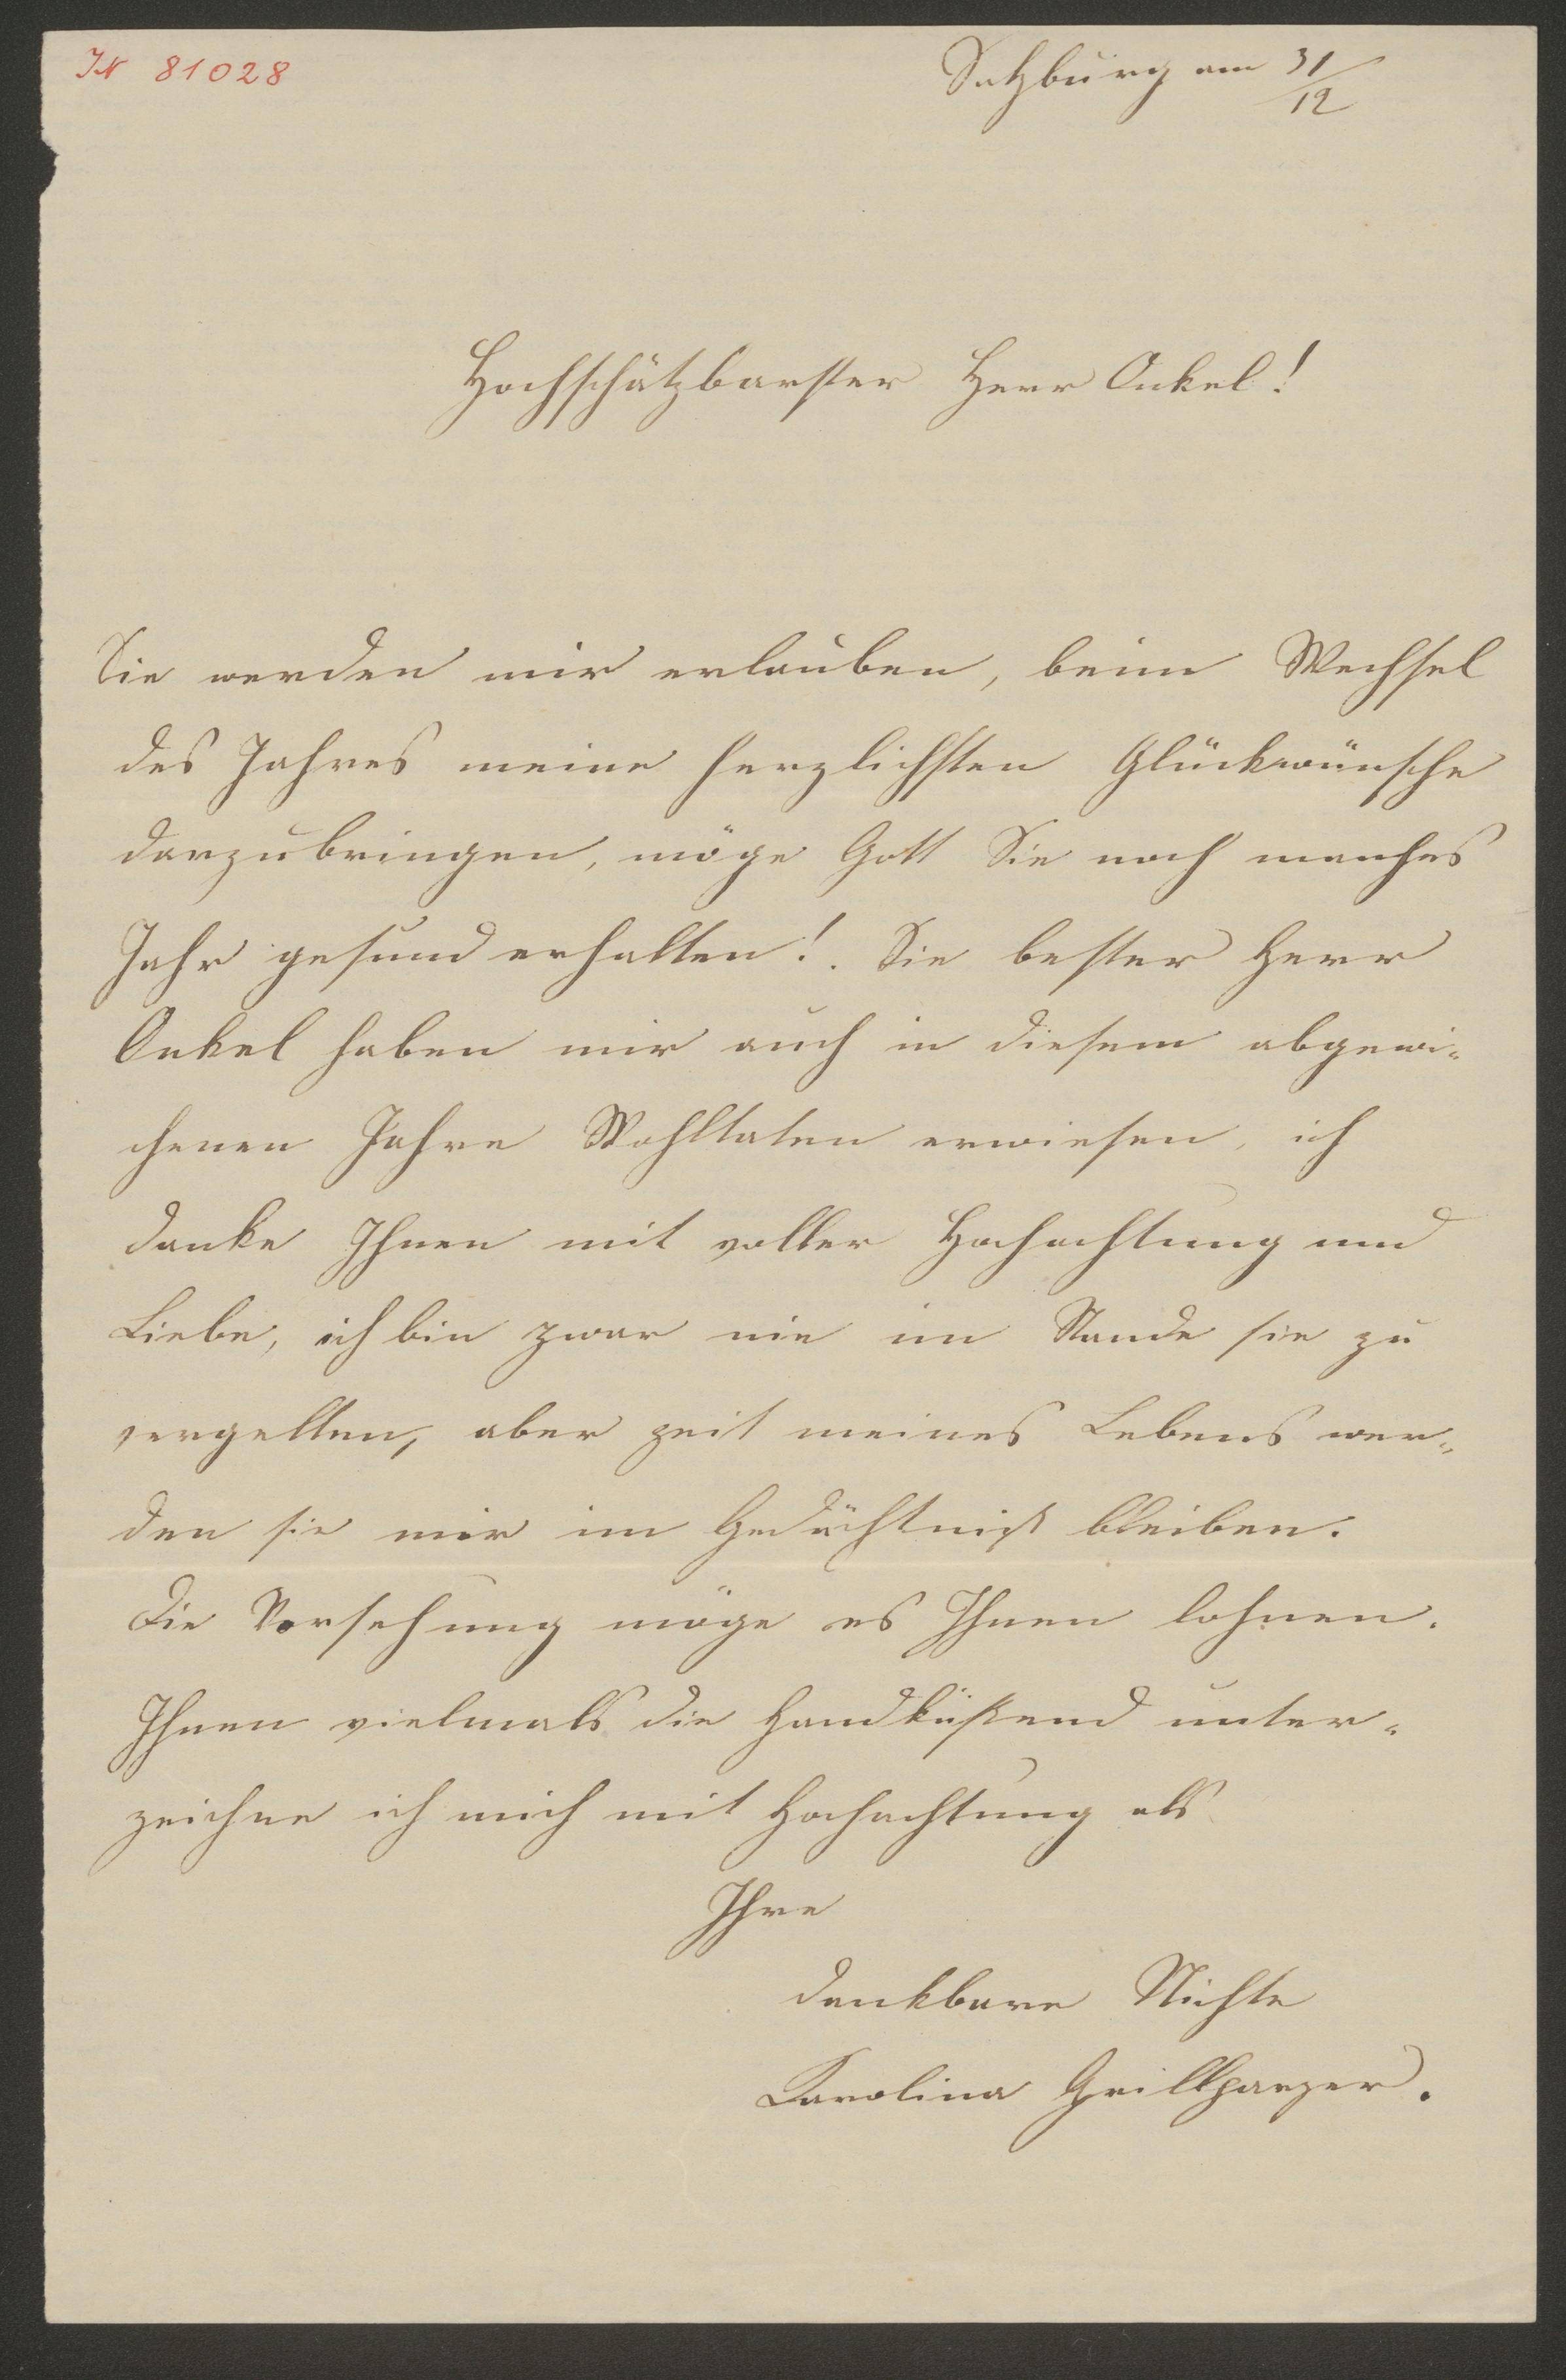 IN 81028
Salzburg am 31/12
Hochschätzbarster Herr Onkel!
Sie werden mir erlauben, beim Wechsel
des Jahres meine herzlichsten Glückwünsche
darzubringen, möge Gott Sie noch manches
Jahr gesund erhalten!. Sie bester Herr
Onkel haben mir auch in diesem abgewi-
chenen Jahre Wohltaten erwiesen, ich
danke Ihnen mit voller Hochachtung und
Liebe, ich bin zwar nie im Stande sie zu
vergelten, aber zeit meines Lebens wer-
den sie mir im Gedächtniß bleiben.
Die Vorsehung möge es Ihnen lohnen.
Ihnen vielmals die Handküßend unter-
zeichne ich mich mit Hochachtung als
Ihre
dankbare Nichte
Karolina Grillparzer.